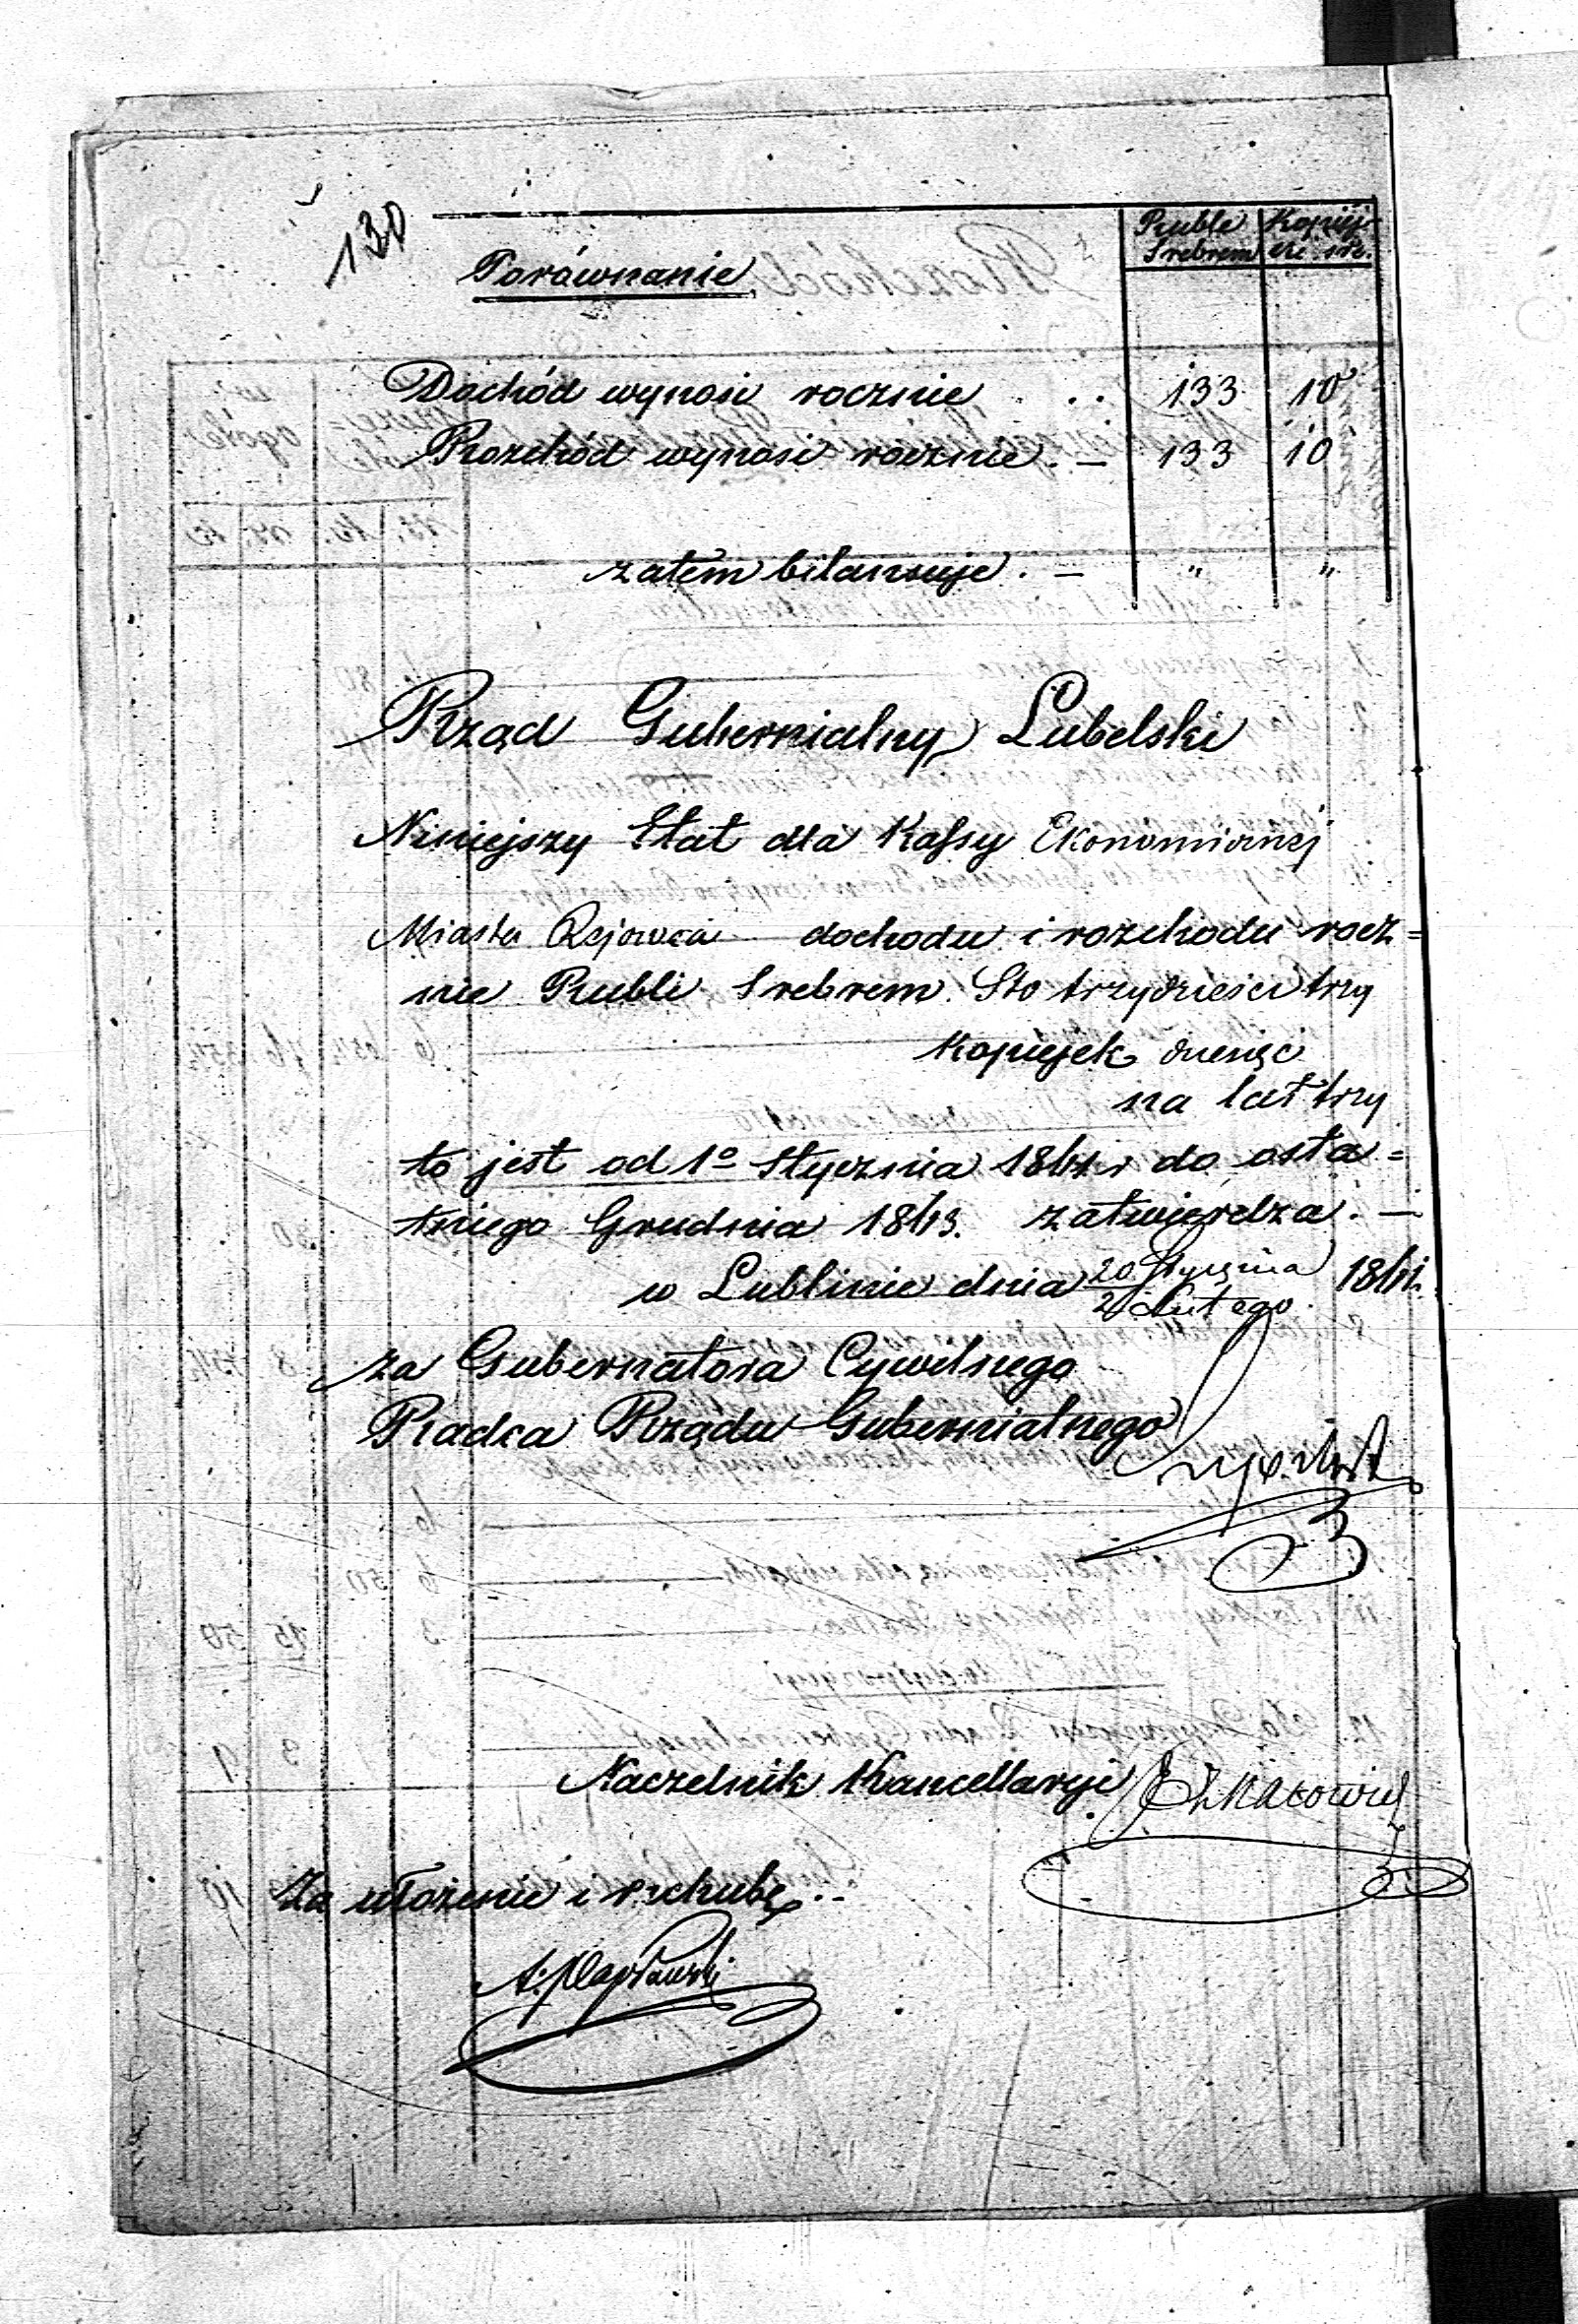 130
Ruble Kopiej-
Srebrem ki sre.
Porównanie
Dochód wynosi rocznie . . . 133 10
Rozchód wynosi rocznie . — 133 10
zatem bilansuje . — " "
Rząd Gubernialny Lubelski
Niniejszy Etat dla Kassy Ekonomicznej
Miasta Rejowca dochodu i rozchodu rocz=
nie Rubli Srebrem Sto trzydzieści trzy
Kopiejek dziesięć
na lat trzy
to jest od 1º Stycznia 1861 r do osta=
tniego Grudnia 1863. zatwierdza. —
w Lublinie dnia 20 Stycznia / 2 Lutego 1861.
za Gubernatora Cywilnego
Radca Rządu Gubernialnego
Naczelnik Kancellaryi
Za ułożenie i rachubę